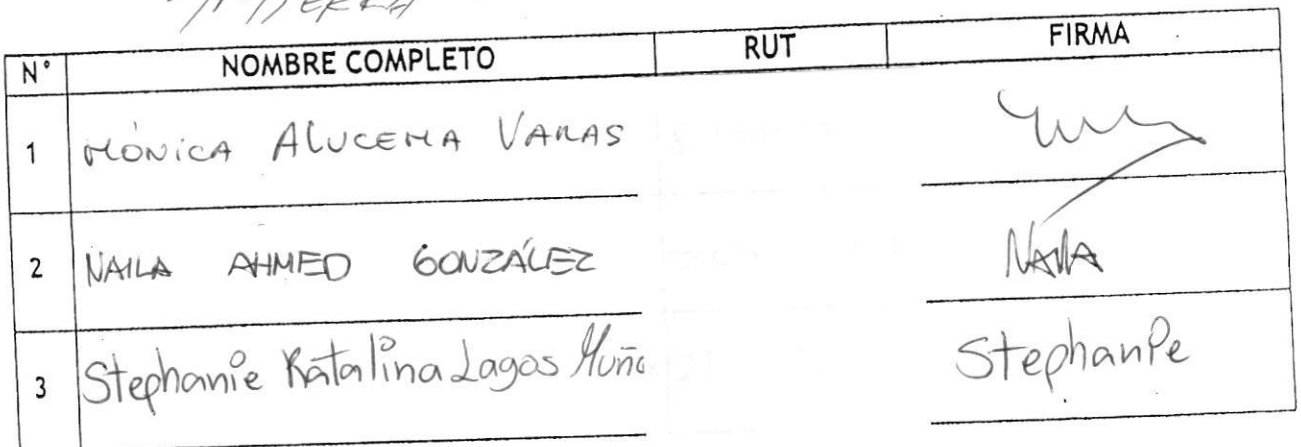 N° NOMBRE COMPLETO RUT FIRMA
1 MÓNICA ALUCEMA VARAS
2 NAILA AHMED GONZÁLEZ Naila
3 Stephanie Katalina Lagos Muño Stephanie